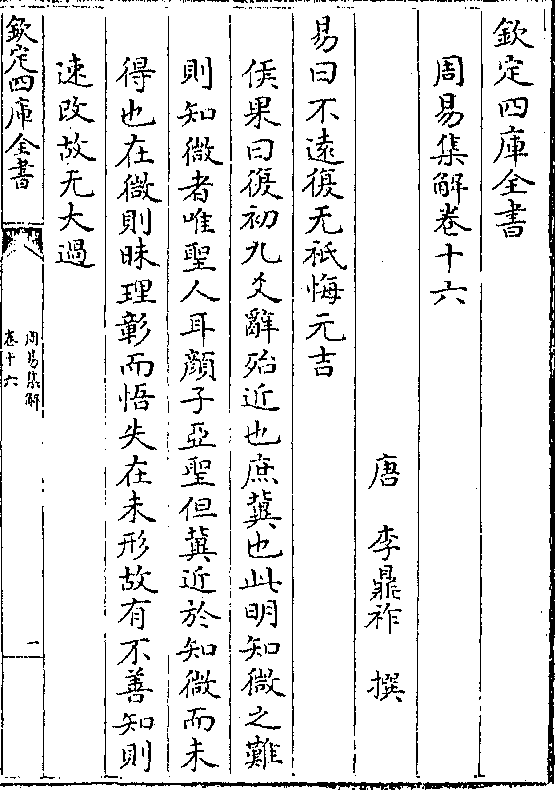 欽定四庫全書
周易集解卷十六
唐 李鼎祚 撰
易曰不遠復无祇悔元吉
侯果曰復初九爻辭殆近也庶冀也此明知微之難
則知微者唯聖人耳顔子亞聖但冀近於知微而未
得也在微則昧理彰而悟失在未形故有不善知則
速改故无大過
欽定四庫全書
周易集解
卷十六
一